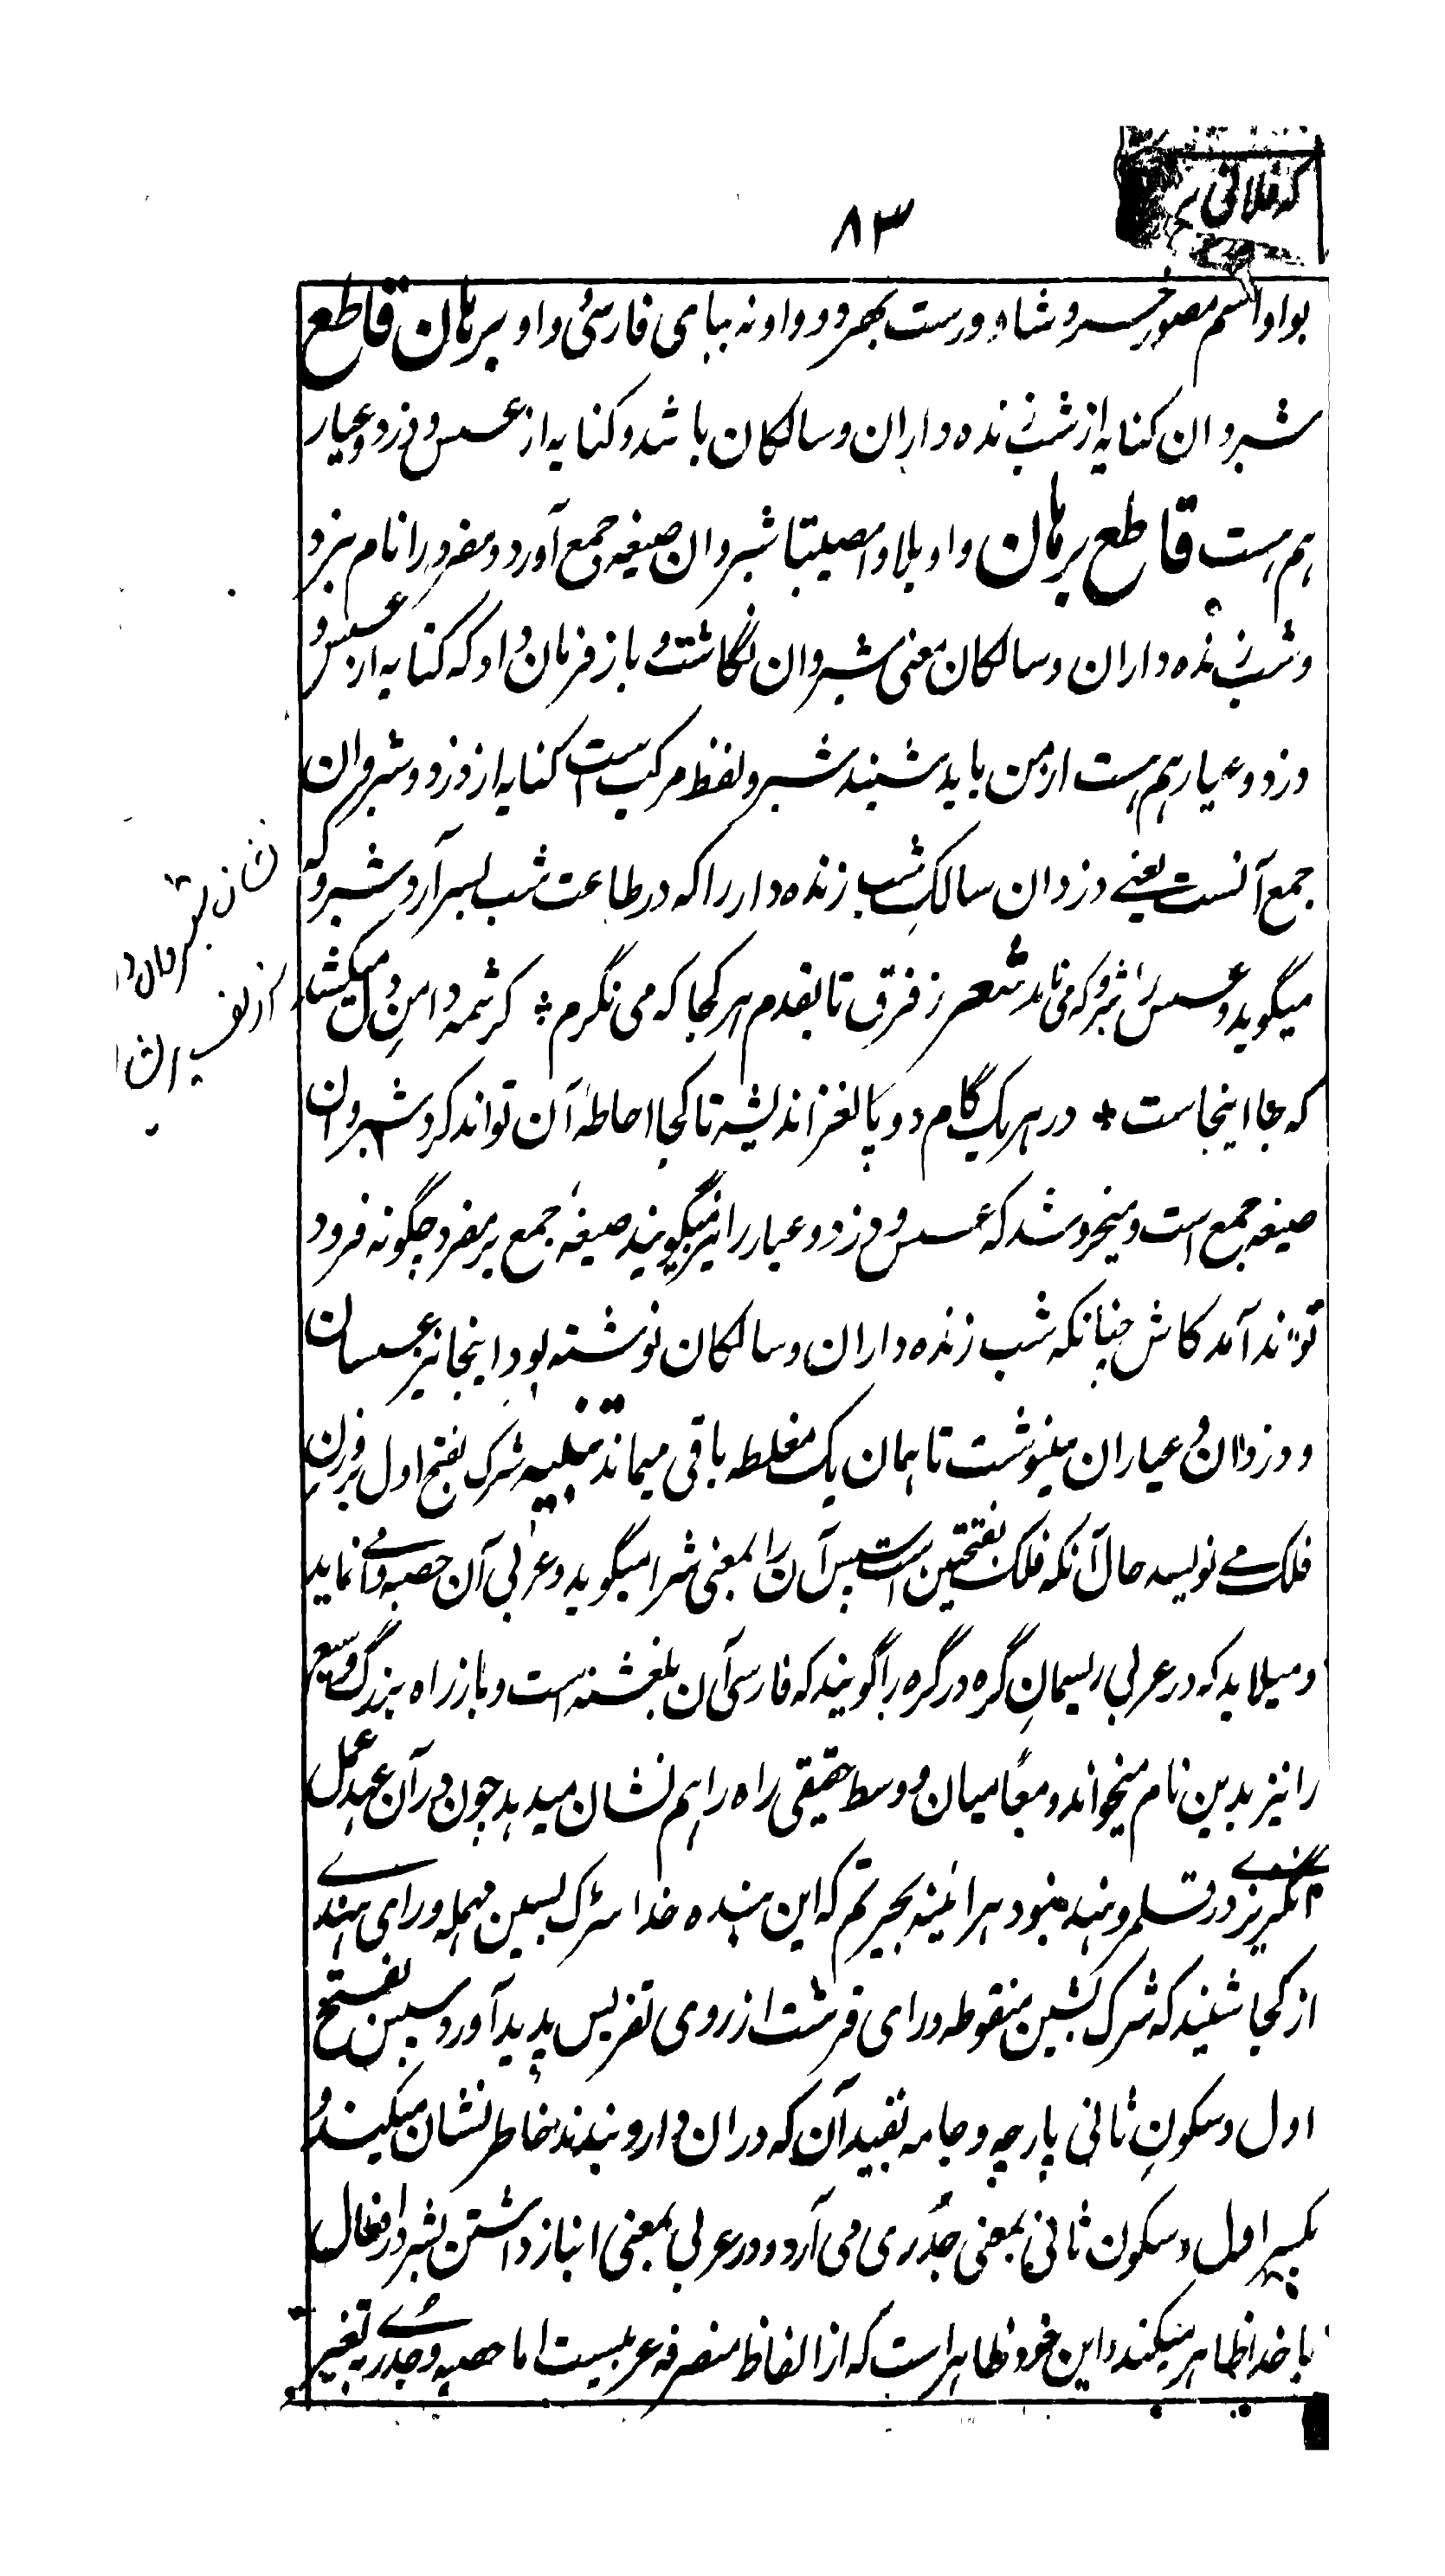 که فلانی
۸۳
بواو اسم مصور خسرو شاور ورست بهر دو واو نه ببای فارسی و واو برهان قاطع
شبروان کنایه از شب زنده داران و سالکان باشد و کنایه از عسس و دزد و عیار
هم هست قاطع برهان واویلا وامصیبتا شبروان صیغه جمع آورد و مفرد را نام نبرد
و شب زنده داران و سالکان معنی شبروان نگاشت و باز فرمان داد که کنایه از عسس و
دزد و عیار هم هست از من باید شنید شبرو لفظ مرکب ست کنایه از دزد و شبروان
جمع آنست یعنی دزدان سالک شب زنده دار را که در طاعت شب بسر آرد شبرو که
میگوید و عسس را شبرو که می نامد شعر ز فرق تا بقدم هر کجا که می نگرم * کرشمه دامن دل میکشد
که جا اینجاست * در هر یک گام دو پا لغز اندیشه تا کجا احاطهٔ آن تواند کرد شبروان
صیغه جمع است و میخروشد که عسس و دزد و عیار را نیز میگویند صیغهٔ جمع بر مفرد چگونه فرود
تواند آمد کاش چنانکه شب زنده داران و سالکان نوشته بود اینجا نیز عسسان
و دزدان و عیاران مینوشت تا همان یک مغلطه باقی میماند تنبیه شرک بفتح اول بر وزن
فلک می نویسد حال آنکه فلک بفتحتین است پس آن را بمعنی شرا میگوید و عربی آن حصبه وا می نماید
و میلاید که در عربی ریسمانِ گره در گره را گویند که فارسی آن بلغشنه است و باز راه بزرگ وسیع
را نیز بدین نام میخواند و معًا میان و وسط حقیقی راه را هم نشان میدهد چون در آن عهد عمل
انگریزی در قلمرو هند نبود هرآئینه بحیرتم که این بنده خدا سڑک بسین مهمله و رای هندی
از کجا شنید که شرک بشین منقوطه و رای قرشت از روی تفریس پدید آورد سپس بفتح
اول و سکونِ ثانی پارچه و جامه بقید آن که در ان دارو بندند خاطر نشان میکند و
بکسر اول و سکون ثانی بمعنی جُدری می آرد و در عربی بمعنی انباز داشتن بشر در افعال
با خدا ظاهر میکند و این خود ظاهر است که از الفاظ منصرفه عربیست اما حصبه و جدری بتغیر